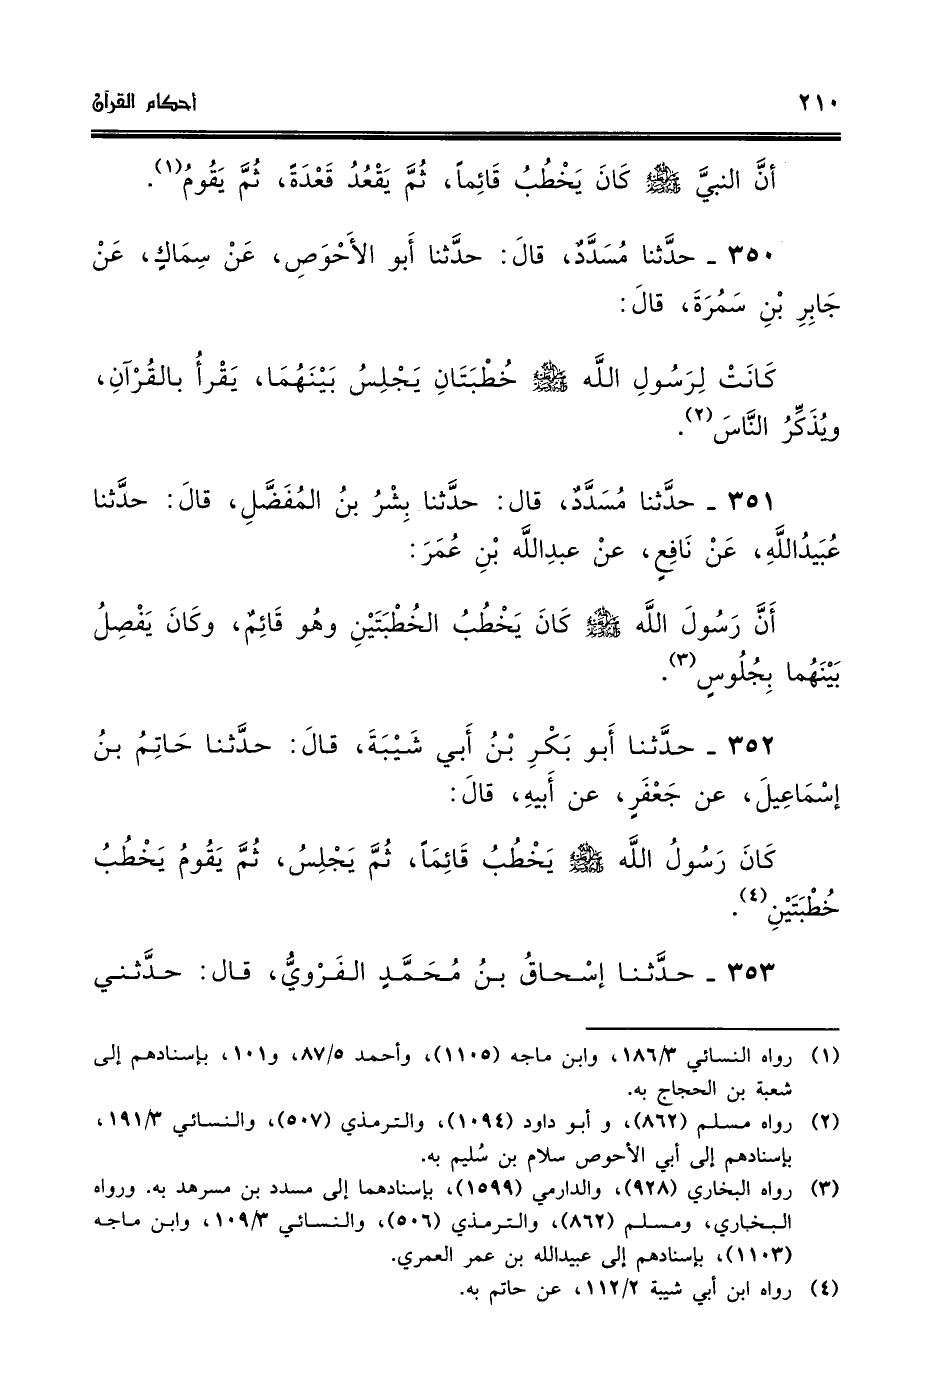 ٢١٠ أحكام القرآن
أنَّ النبيَّ ﷺ كَانَ يَخْطُبُ قَائِماً، ثُمَّ يَقْعُدُ قَعْدَةً، ثُمَّ يَقُومُ(١).
٣٥٠ ـ حدَّثنا مُسَدَّدٌ، قالَ: حدَّثنا أَبو الأَحْوَصِ، عَنْ سِمَاكٍ، عَنْ
جَابِرِ بْنِ سَمُرَةَ، قالَ:
كَانَتْ لِرَسُولِ اللَّه ﷺ خُطْبَتَانِ يَجْلِسُ بَيْنَهُمَا، يَقْرأُ بالقُرْآنِ،
ويُذَكِّرُ النَّاسَ(٢).
٣٥١ ـ حدَّثنا مُسَدَّدٌ، قال: حدَّثنا بِشْرُ بنُ المُفَضَّلِ، قالَ: حدَّثنا
عُبَيدُاللَّهِ، عَنْ نَافِعٍ، عنْ عبدِاللَّه بْنِ عُمَرَ:
أنَّ رَسُولَ اللَّه ﷺ كَانَ يَخْطُبُ الخُطْبَتَيْنِ وهُو قَائِمٌ، وكَانَ يَفْصِلُ
بَيْنَهُما بِجُلُوسٍ(٣).
٣٥٢ ـ حدَّثنا أَبو بَكْرِ بْنُ أَبي شَيْبَةَ، قالَ: حدَّثنا حَاتِمُ بنُ
إسْمَاعِيلَ، عن جَعْفَرٍ، عن أَبيهِ، قالَ:
كَانَ رَسُولُ اللَّه ﷺ يَخْطُبُ قَائِمَاً، ثُمَّ يَجْلِسُ، ثُمَّ يَقُومُ يَخْطُبُ
خُطْبَتَيْنِ(٤).
٣٥٣ ـ حدَّثنا إسْحاقُ بنُ مُحَمَّدٍ الفَرْويُّ، قال: حدَّثني
(١) رواه النسائي ١٨٦/٣، وابن ماجه (١١٠٥)، وأحمد ٨٧/٥، و١٠١، بإسنادهم إلى
شعبة بن الحجاج به.
(٢) رواه مسلم (٨٦٢)، و أبو داود (١٠٩٤)، والترمذي (٥٠٧)، والنسائي ١٩١/٣،
بإسنادهم إلى أبي الأحوص سلام بن سُليم به.
(٣) رواه البخاري (٩٢٨)، والدارمي (١٥٩٩)، بإسنادهما إلى مسدد بن مسرهد به. ورواه
البخاري، ومسلم (٨٦٢)، والترمذي (٥٠٦)، والنسائي ١٠٩/٣، وابن ماجه
(١١٠٣)، بإسنادهم إلى عبيدالله بن عمر العمري.
(٤) رواه ابن أبي شيبة ١١٢/٢، عن حاتم به.